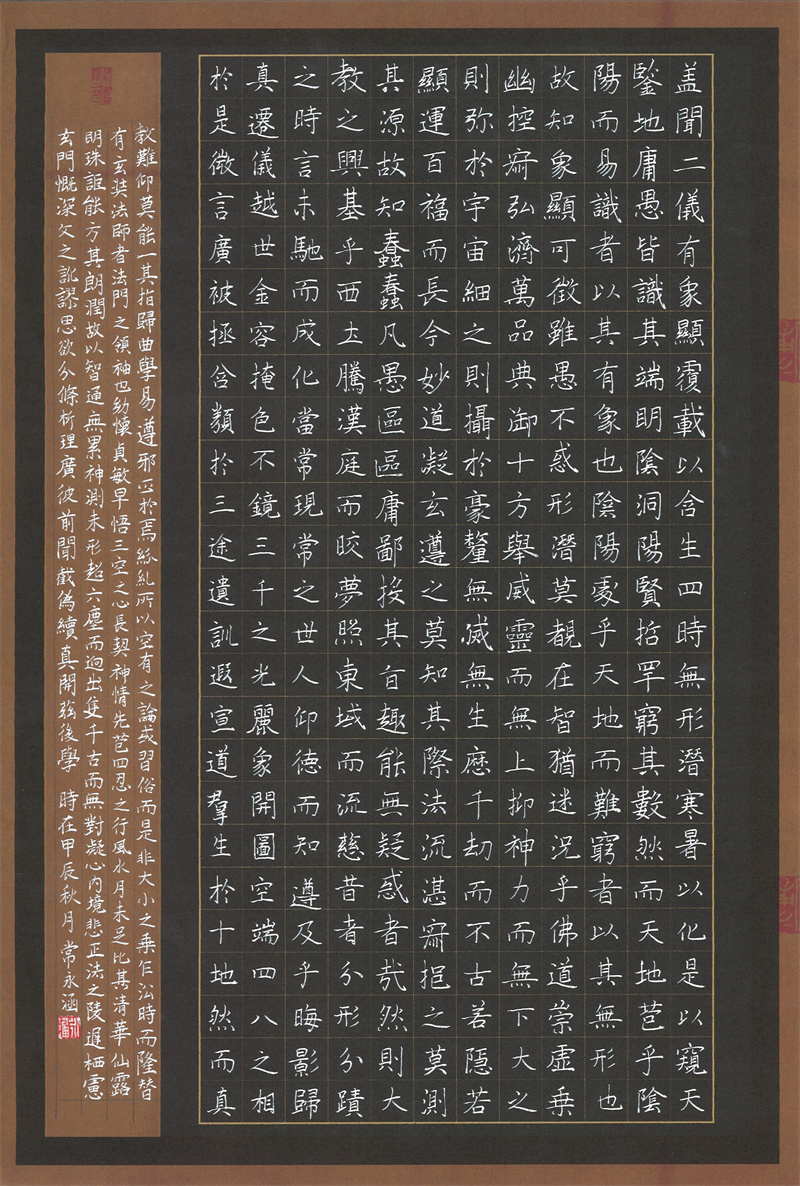 盖聞二儀有象顯覆載以含生四時無形潛寒暑以化是以窺天
鑒地庸愚皆識其端明陰洞陽賢哲罕窮其數然而天地苞乎陰
陽而易識者以其有象也陰陽處乎天地而難窮者以其無形也
故知象顯可徵雖愚不惑形潛莫覩在智猶迷況乎佛道崇虛乗
幽控寂弘濟萬品典御十方舉威靈而無上抑神力而無下大之
則弥於宇宙細之則攝於豪釐無滅無生歷千劫而不古若隱若
顯運百福而長今妙道凝玄遵之莫知其際法流湛寂挹之莫測
其源故知蠢蠢凡愚區區庸鄙投其旨趣能無疑惑者哉然則大
教之興基乎西土騰漢庭而皎夢照東域而流慈昔者分形分蹟
之時言未馳而成化當常現常之世人仰德而知遵及乎晦影歸
真遷儀越世金容掩色不鏡三千之光麗象開圖空端四八之相
於是微言廣被拯含類於三途遺訓遐宣道羣生於十地然而真
教難仰莫能一其指歸曲學易遵邪正於焉紛糺所以空有之論或習俗而是非大小之乗乍沿時而隆替
有玄奘法師者法門之領袖也幼懷貞敏早悟三空之心長契神情先苞四忍之行風水月未足比其清華仙露
明珠詎能方其朗潤故以智通無累神測未形超六塵而迥出隻千古而無對凝心內境悲正法之陵遲栖慮
玄門慨深文之訛謬思欲分條析理廣彼前聞截偽續真開茲後學 時在甲辰秋月 常永涵